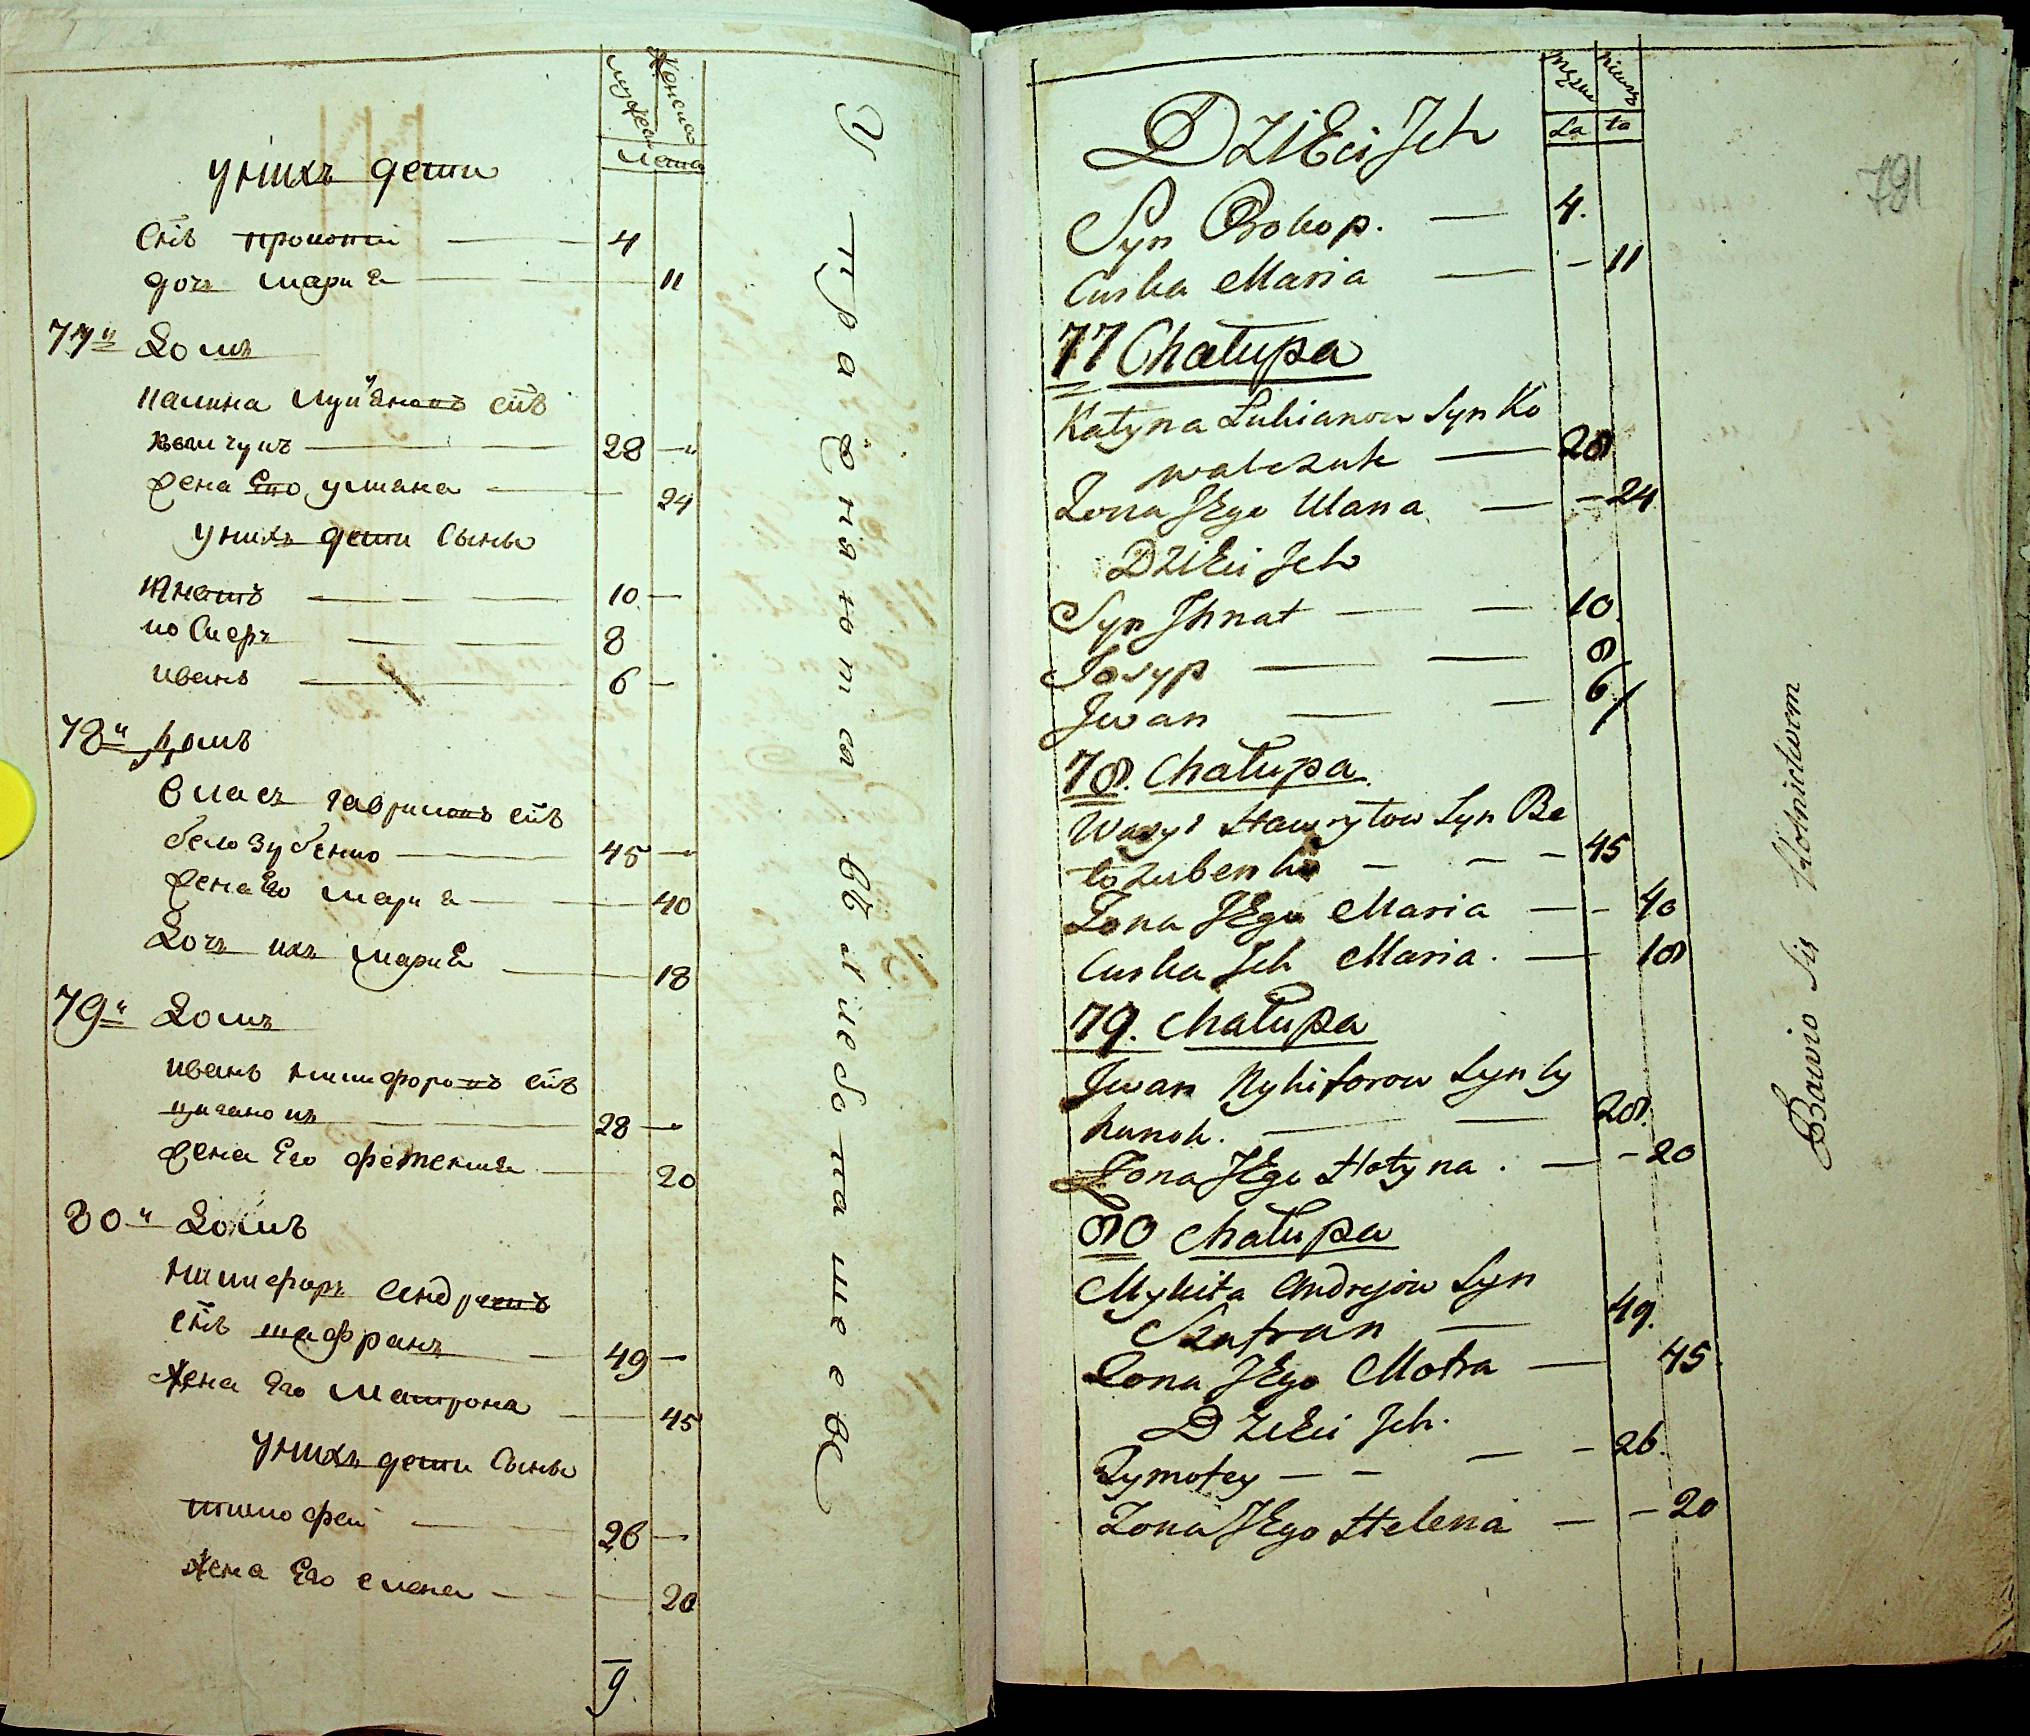 мужеска
женска
лета
у нихъ дети
Снъ прокопий — 4
дочь мария — 11
77й Домъ
калина лукьяновъ снъ
ковалчукъ — 28 —
жена Его уляна — 24
у нихъ дети Сыны
Игнатъ — 10 —
иосифъ — 8
иванъ — 6 —
78й домъ
власъ гавриловъ снъ
белозубенко — 45 —
жена Его мария — 40
Дочь ихъ мария — 18
79й Домъ
иванъ никифоровъ снъ
цигановъ — 28 —
жена Его фотения — 20
80й Домъ
никифоръ андреевъ
снъ шафранъ — 49 —
жена Его матрона — 45
у нихъ дети Сыны
тимофей — 26 —
жена Его елена — 20
9.
Упражняются въ хлебопашеве
791
la ta
DZIEci Jch
Syn Prokop. — 4.
Curka Maria — 11
77 Chałupa
Kałyna Lukianow Syn Ko
walczuk — 28
Zona JEgo Ulana — 24
DZIEci Jch
Syn Jhnat — 10
Josyp — 8
Jwan — 6
78. Chałupa
Wasyl Hawryłow Syn Be
łozubenko — 45
Zona JEgo Maria — 40
Curka Jch Maria. — 18
79. Chałupa
Jwan Nykiforow Syn Cy
hanok. — 28.
Zona JEgo Hotyna. — 20
80 Chałupa
Mykita Andrejow Syn
Szafran — 49.
Zona JEgo Motra — 45
DZIEci Jch.
Tymofey — 26.
Zona JEgo Helena — 20
Bawio Się Rolnictwem